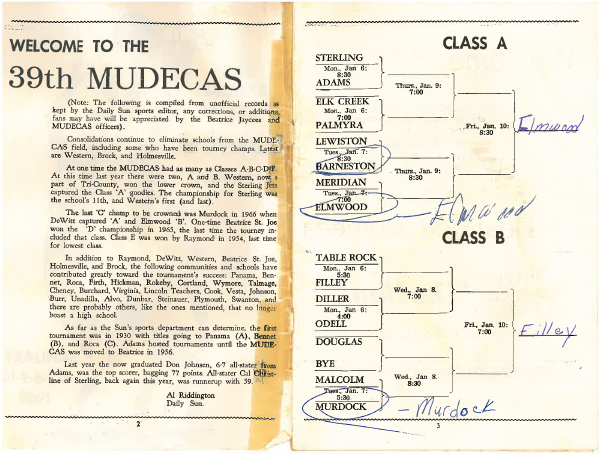 WELCOME TO THE
39th MUDECAS
(Note: The following is compiled from unofficial records as
kept by the Daily Sun sports editor, any corrections, or additions
fans may have will be appreciated by the Beatrice Jaycees and
MUDECAS officers).
Consolidations continue to eliminate schools from the MUDE-
CAS field, including some who have been tourney champs. Latest
are Western, Brock, and Holmesville.
At one time the MUDECAS had as many as Classes A-B-C-D-E.
At this time last year there were two, A and B. Western, now a
part of Tri-County, won the lower crown, and the Sterling Jets
captured the Class 'A' goodies. The championship for Sterling was
the school's 11th, and Western's first (and last).
The last 'C' champ to be crowned was Murdock in 1966 when
DeWitt captured 'A' and Elmwood 'B'. One-time Beatrice St. Joe
won the 'D' championship in 1965, the last time the tourney in-
cluded that class. Class E was won by Raymond in 1954, last time
for lowest class.
In addition to Raymond, DeWitt, Western, Beatrice St. Joe,
Holmesville, and Brock, the following communities and schools have
contributed greatly toward the tournament's success: Panama, Ben-
net, Roca, Firth, Hickman, Rokeby, Cortland, Wymore, Talmage,
Cheney, Burchard, Virginia, Lincoln Teachers, Cook, Vesta, Johnson,
Burr, Unadilla, Alvo, Dunbar, Steinauer, Plymouth, Swanton, and
there are probably others, like the ones mentioned, that no longer
boast a high school.
As far as the Sun's sports department can determine, the first
tournament was in 1930 with titles going to Panama (A), Bennet
(B), and Roca (C). Adams hosted tournaments until the MUDE-
CAS was moved to Beatrice in 1956.
Last year the now graduated Don Johnson, 6-7 all-stater from
Adams, was the top scorer, bagging 77 points. All-stater Cal
line of Sterling, back again this year, was runnerup with 59.
Al Riddington
Daily Sun.
2
CLASS A
STERLING
Mon., Jan 6:
8:30
ADAMS
Thurs., Jan. 9:
7:00
ELK CREEK
Mon., Jan 6:
7:00
PALMYRA
Fri., Jan. 10:
8:30
Elmwood
LEWISTON
Tues., Jan. 7:
8:30
BARNESTON
Thurs., Jan. 9:
8:30
MERIDIAN
Tues., Jan. 7:
7:00
ELMWOOD
Elmwood
CLASS B
TABLE ROCK
Mon., Jan 6:
5:30
FILLEY
Wed., Jan 8.
7:00
DILLER
Mon., Jan 6:
4:00
ODELL
Fri., Jan. 10:
7:00
Filley
DOUGLAS
BYE
Wed., Jan 8.
8:30
MALCOLM
Tues., Jan. 7:
5:30
MURDOCK
- Murdock
3